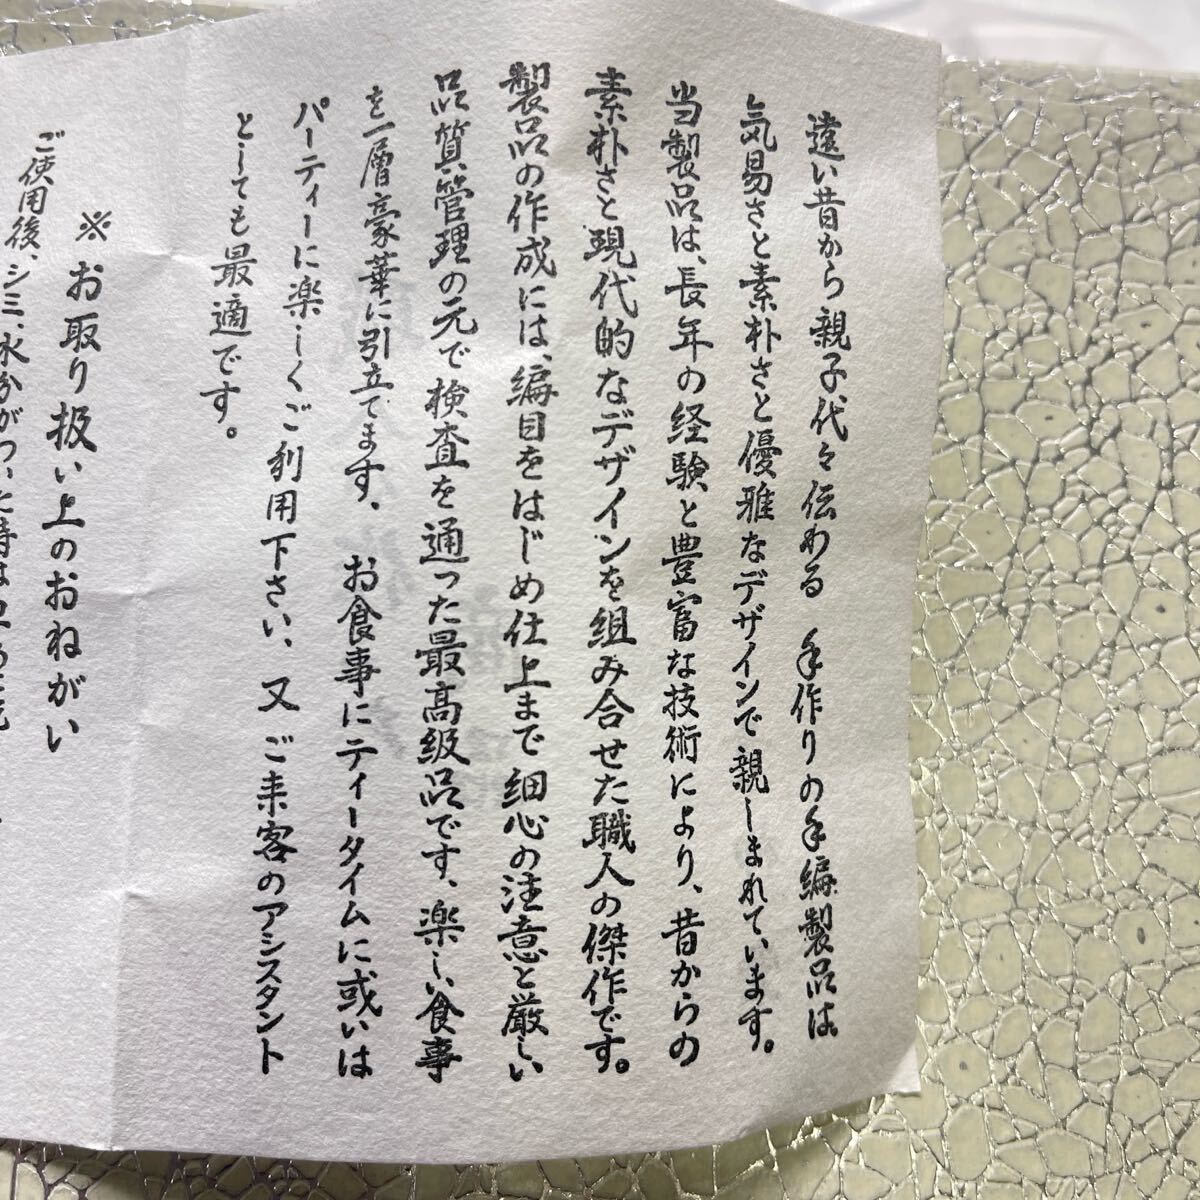 遠い昔から親子代々伝わる 手作りの手編製品は
気易さと素朴さと優雅なデザインで親しまれています。
当製品は、長年の経験と豊富な技術により、昔からの
素朴さと現代的なデザインを組み合せた職人の傑作です。
製品の作成には、編目をはじめ仕上まで細心の注意と厳しい
品質管理の元で検査を通った最高級品です、楽しい食事
を一層豪華に引立てます、 お食事にティータイムに或いは
パーティーに楽しくご利用下さい、又 ご来客のアシスタント
としても最適です。
※お取り扱い上のおねがい
ご使用後、シミ、水分がついた時は